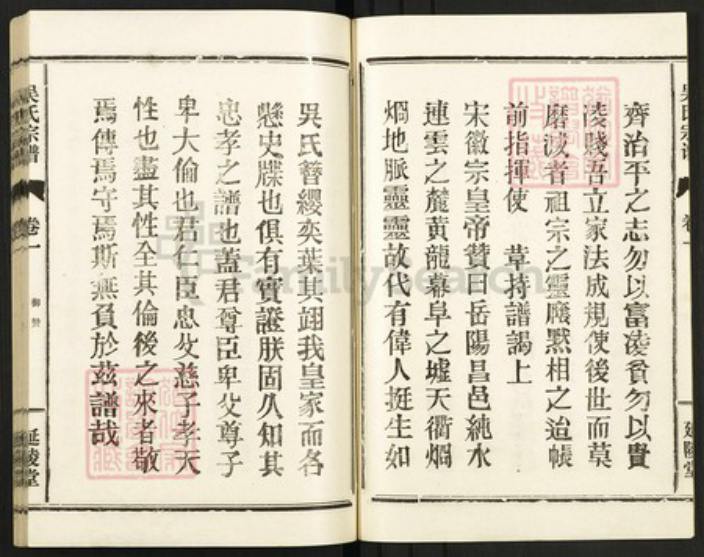 齊治平之志勿以富淩貧勿以貴
淩賤吾立家法成規使後世而莫
磨滅者祖宗之靈廢默相之迨帳
前指揮使 草持譜謁上
宋徽宗皇帝贊曰岳陽昌邑純水
連雲之麓黄龍幕阜之墟天衢烱
烱地脈靈靈故代有偉人挺生如
吳氏宗譜
卷一
延陵堂
吳氏簪纓奕葉其翊我皇家而各
懸史牒也俱有實證朕固久知其
忠孝之譜也蓋君尊臣卑父尊子
卑大倫也君仁臣忠父慈子孝天
性也盡其性全其倫後之來者敬
焉傳焉守焉斯無負於茲譜哉
吳氏宗譜
卷一
御贊
延陵堂
FamilySearch